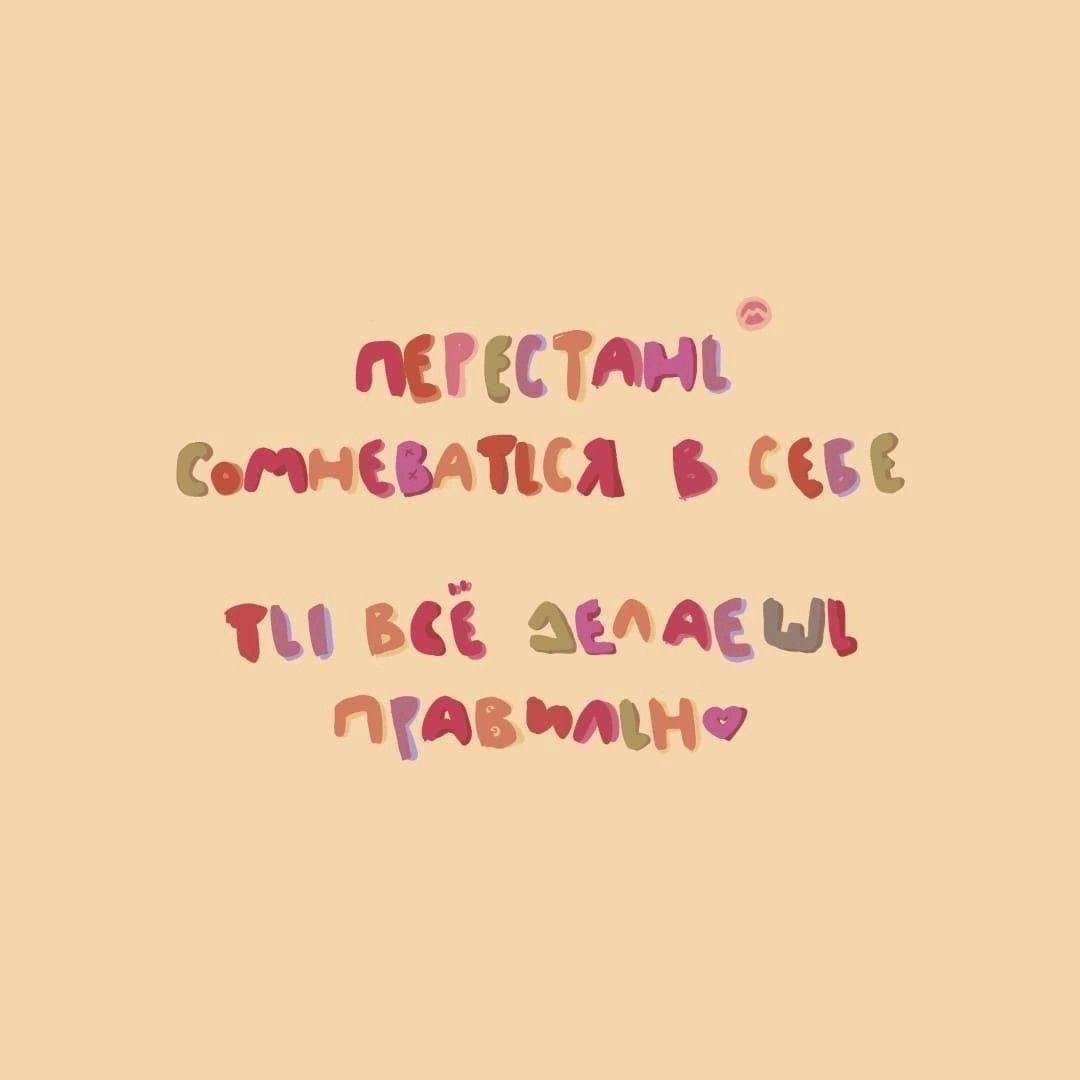 ПЕРЕСТАНЬ
СОМНЕВАТЬСЯ В СЕБЕ
ТЫ ВСЁ ДЕЛАЕШЬ
ПРАВИЛЬНО